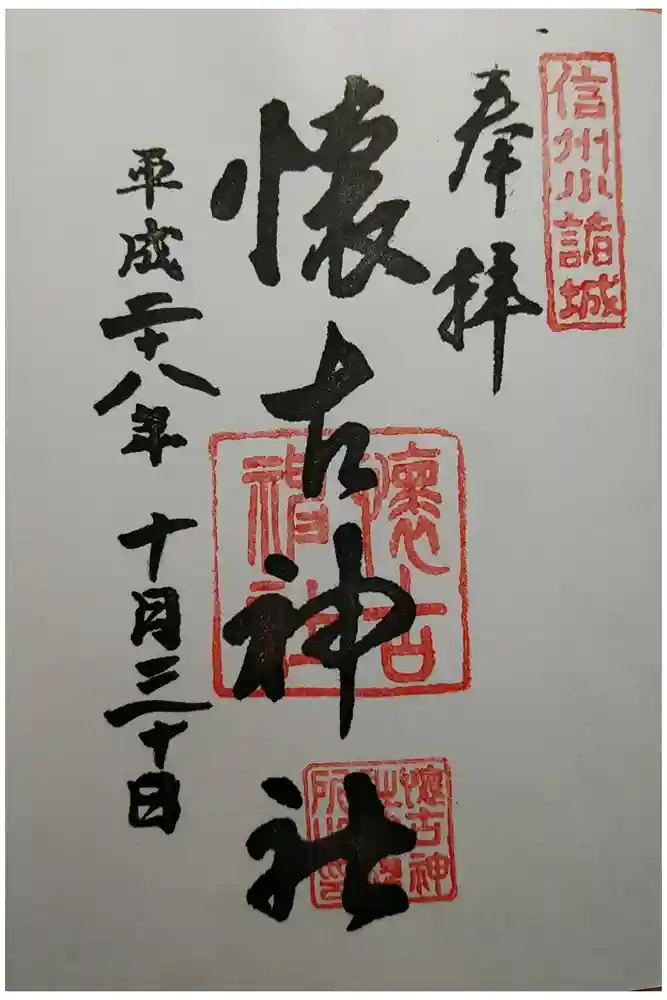 信州小諸城
奉拝
懐古神社
平成二十八年 十月三十日
懐古
神社
懐古神